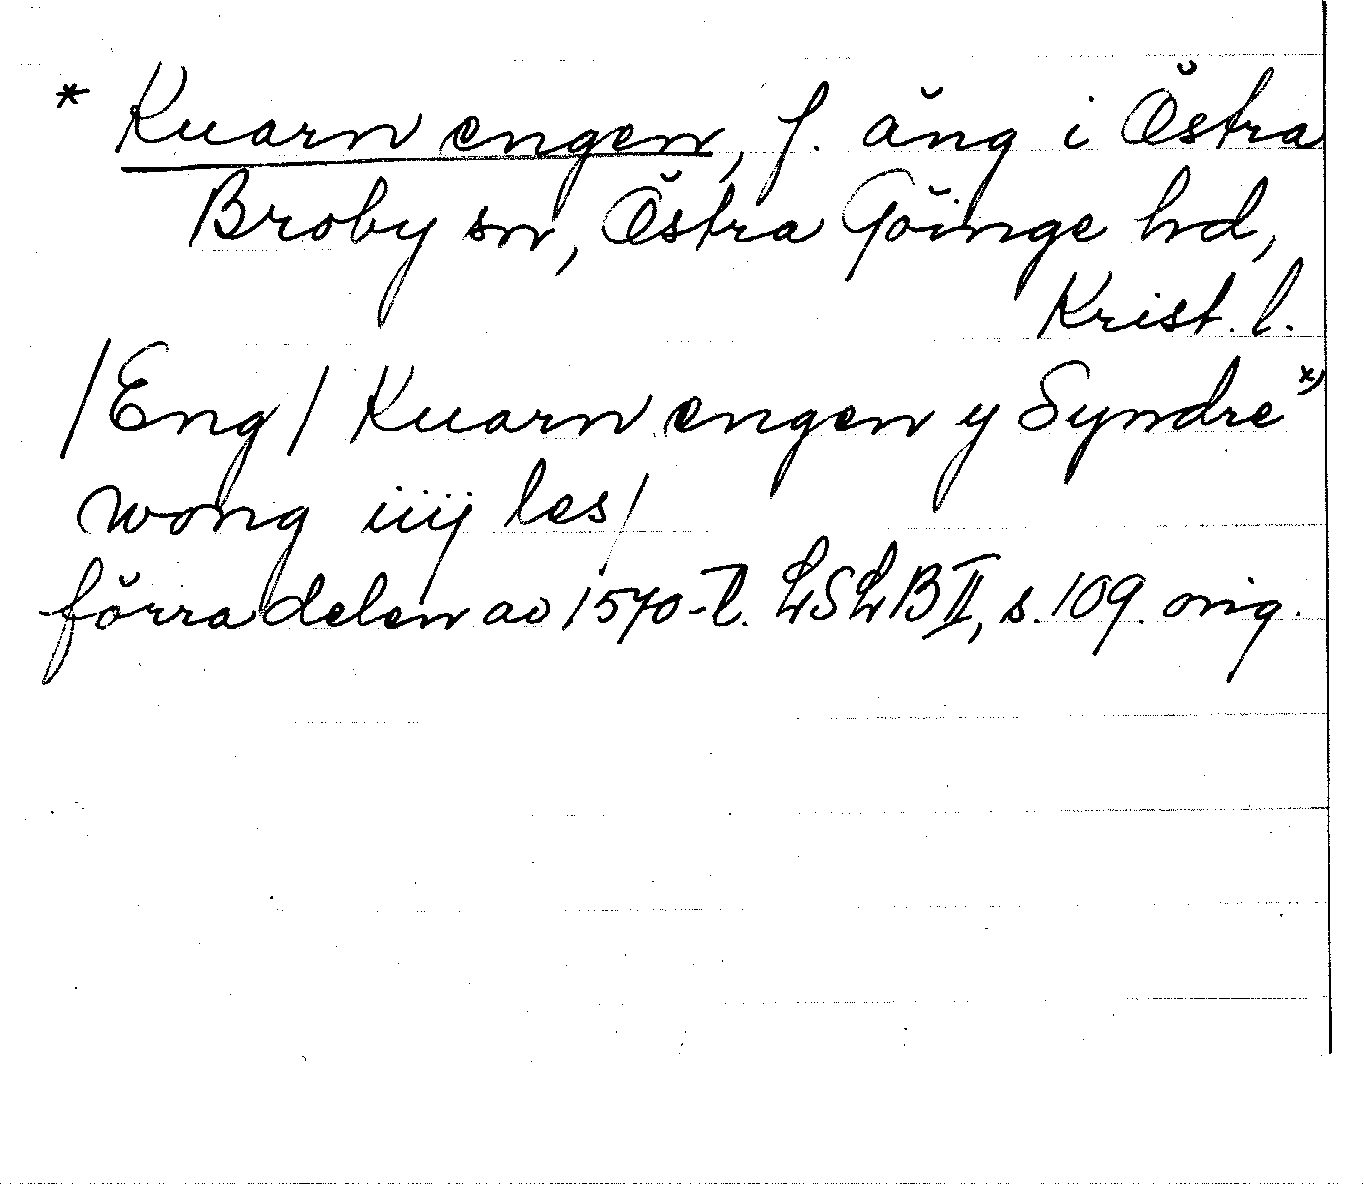 * Kuarn engen, f. äng i Östra
Broby sn, Östra Göinge hd,
Krist. l.
/Eng/ Kuarn engen y Syndre x)
wong iiij les/
förra delen av 1570-t. LSLB II, s. 109. orig.